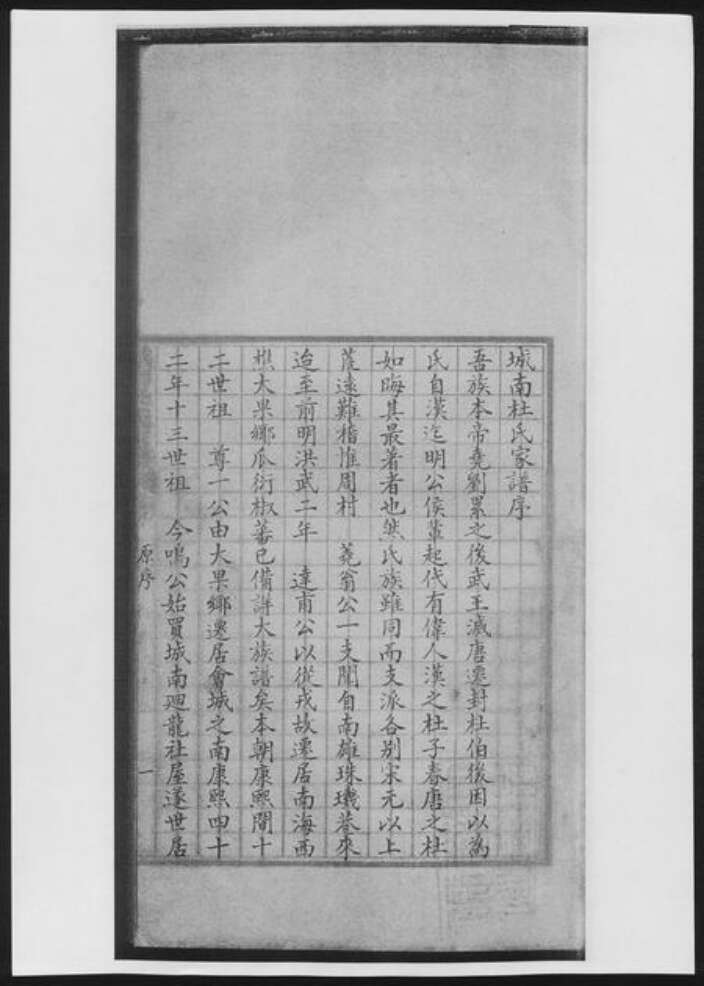 城南杜氏家譜序
吾族本帝堯劉累之後武王滅唐遷封杜伯後因以為
氏自漢迄明公侯輩起代有偉人漢之杜子春唐之杜
如晦其最著者也然氏族雖同而支派各别宋元以上
荒遠難稽惟周村　菱翁公一支聞自南雄珠璣巷來
迨至前明洪武二年　達甫公以從戎故遷居南海西
樵大果鄉瓜衍椒蕃已備詳大族譜矣本朝康熙間十
二世祖　尊一公由大果鄉遷居會城之南康熙四十
二年十三世祖　今鳴公始買城南廻龍社屋遂世居
原序
一